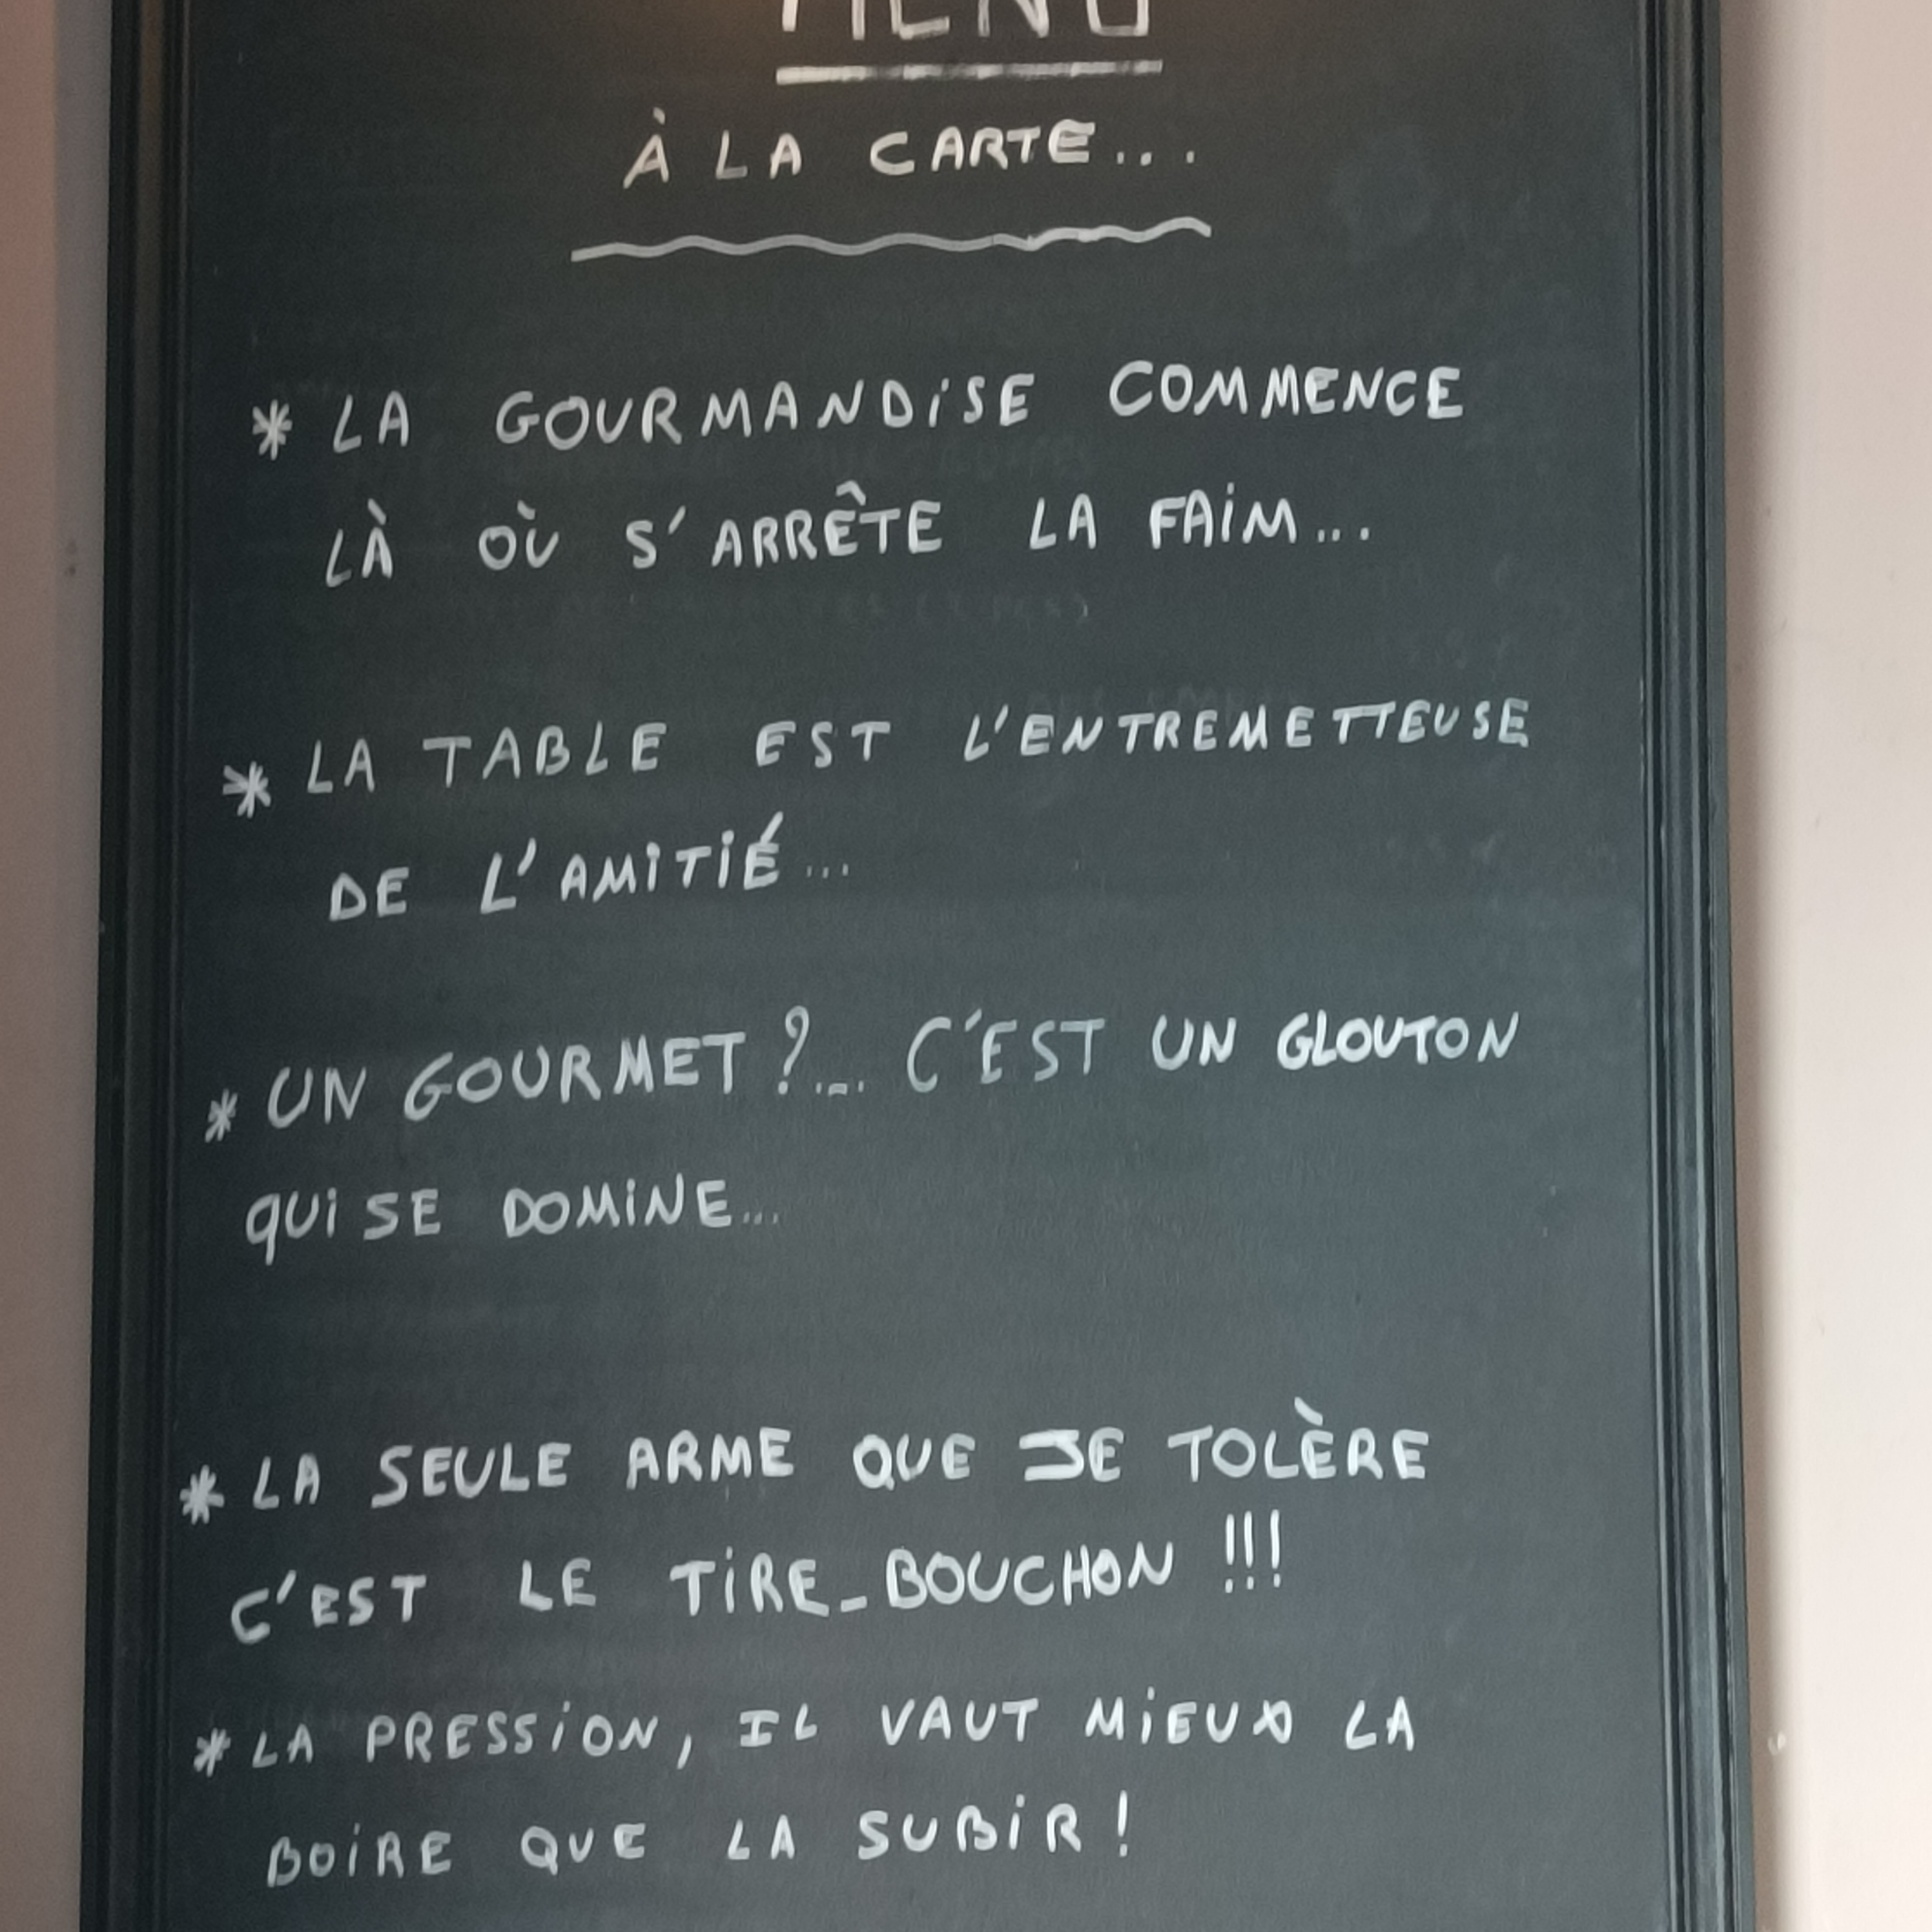 MENU
À LA CARTE...
* LA GOURMANDiSE COMMENCE
LÀ OÙ S'ARRÊTE LA FAiM...
* LA TABLE EST L'ENTREMETTEUSE
DE L'AMiTiÉ...
* UN GOURMET ?... C'EST UN GLOUTON
QUi SE DOMiNE...
* LA SEULE ARME QUE JE TOLÈRE
C'EST LE TiRE_BOUCHON !!!
* LA PRESSiON, IL VAUT MiEUX LA
BOiRE QUE LA SUBiR !